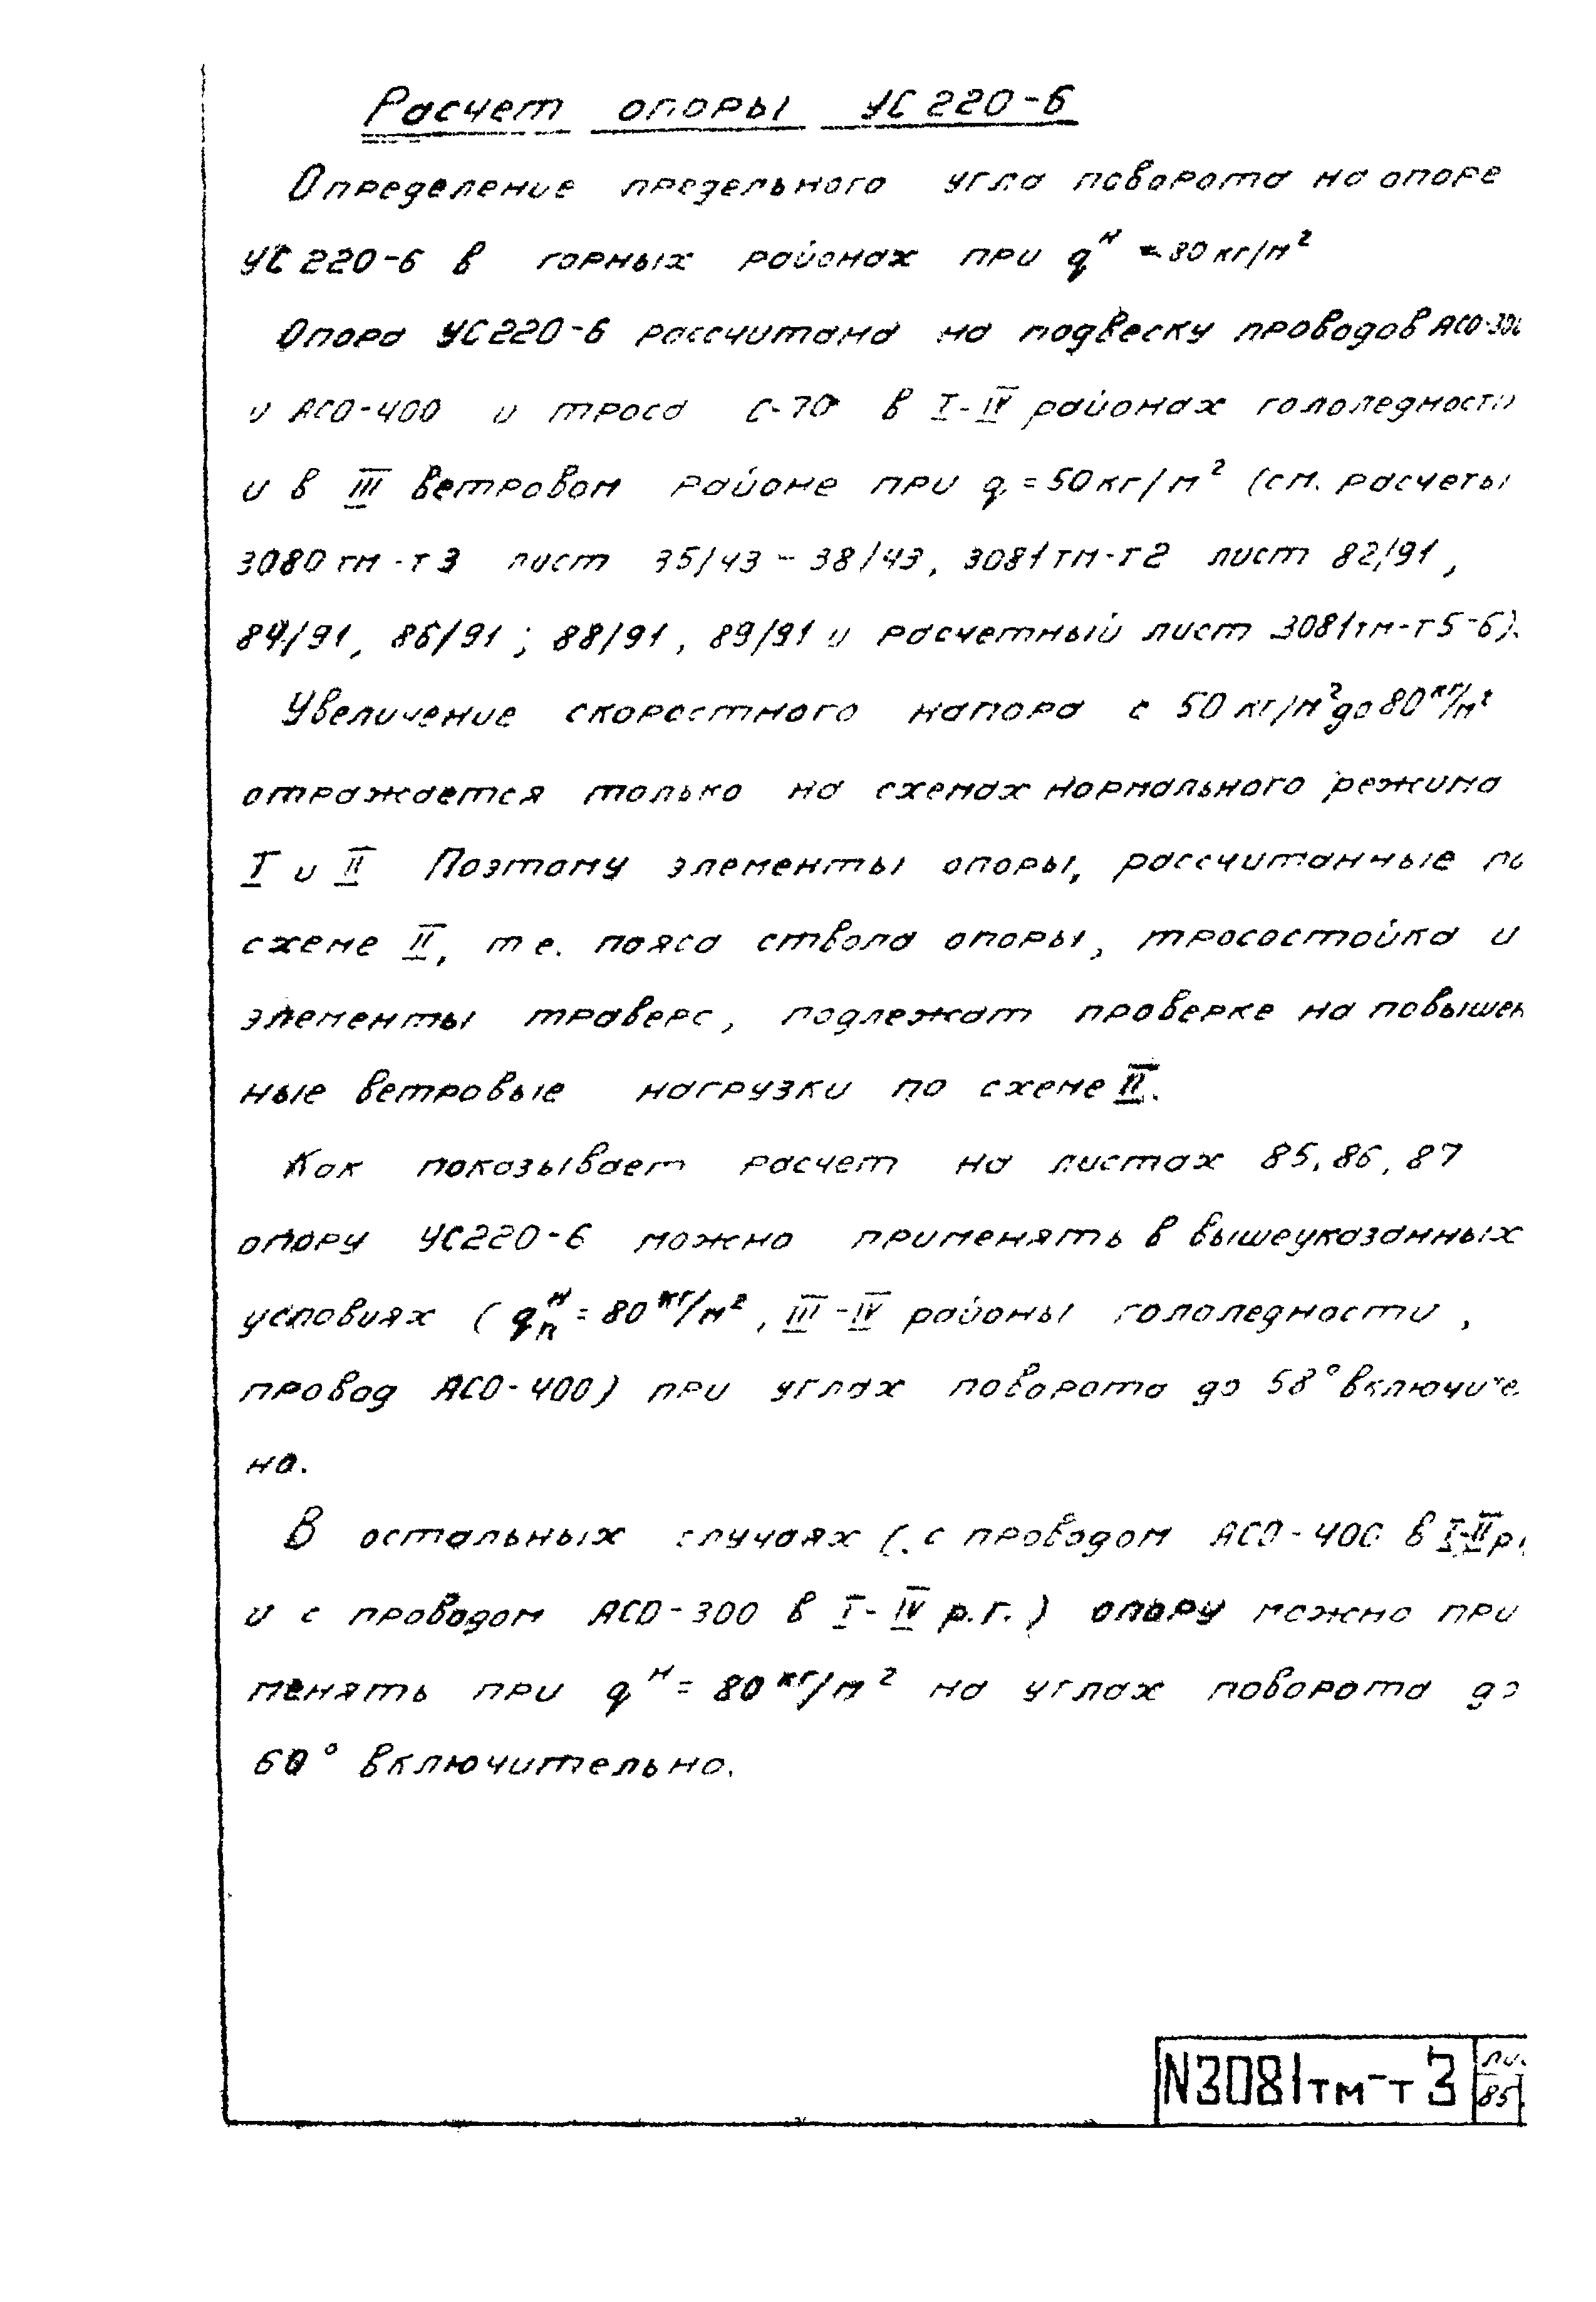 Расчет опоры УС 220-6
Определение предельного угла поворота на опоре
УС 220-6 в горных районах при qᴴ = 80 кг/м²
Опора УС220-6 рассчитана на подвеску проводов АСО-300
и АСО-400 и троса С-70 в I-IV районах гололедности
и в III ветровом районе при q = 50 кг/м² (см. расчеты
3080 тм-т3 лист 35/43 - 38/43, 3081тм-т2 лист 82/91,
84/91, 86/91; 88/91, 89/91 и расчетный лист 3081тм-т5-6).
Увеличение скоростного напора с 50 кг/м² до 80 кг/м²
отражается только на схемах нормального режима
I и II Поэтому элементы опоры, рассчитанные по
схеме II, т е. пояса ствола опоры, тросостойка и
элементы траверс, подлежат проверке на повышен
ные ветровые нагрузки по схеме II.
Как показывает расчет на листах 85, 86, 87
опору УС220-6 можно применять в вышеуказанных
условиях (qₙᴴ = 80 кг/м², III-IV районы гололедности,
провод АСО-400) при углах поворота до 58° включите
но.
В остальных случаях (с проводом АСО-400 в I-II р.
и с проводом АСО-300 в I-IV р.г.) опору можно при
менять при qᴴ = 80 кг/м² на углах поворота до
60° включительно.
N3081тм-т3
ли.
85